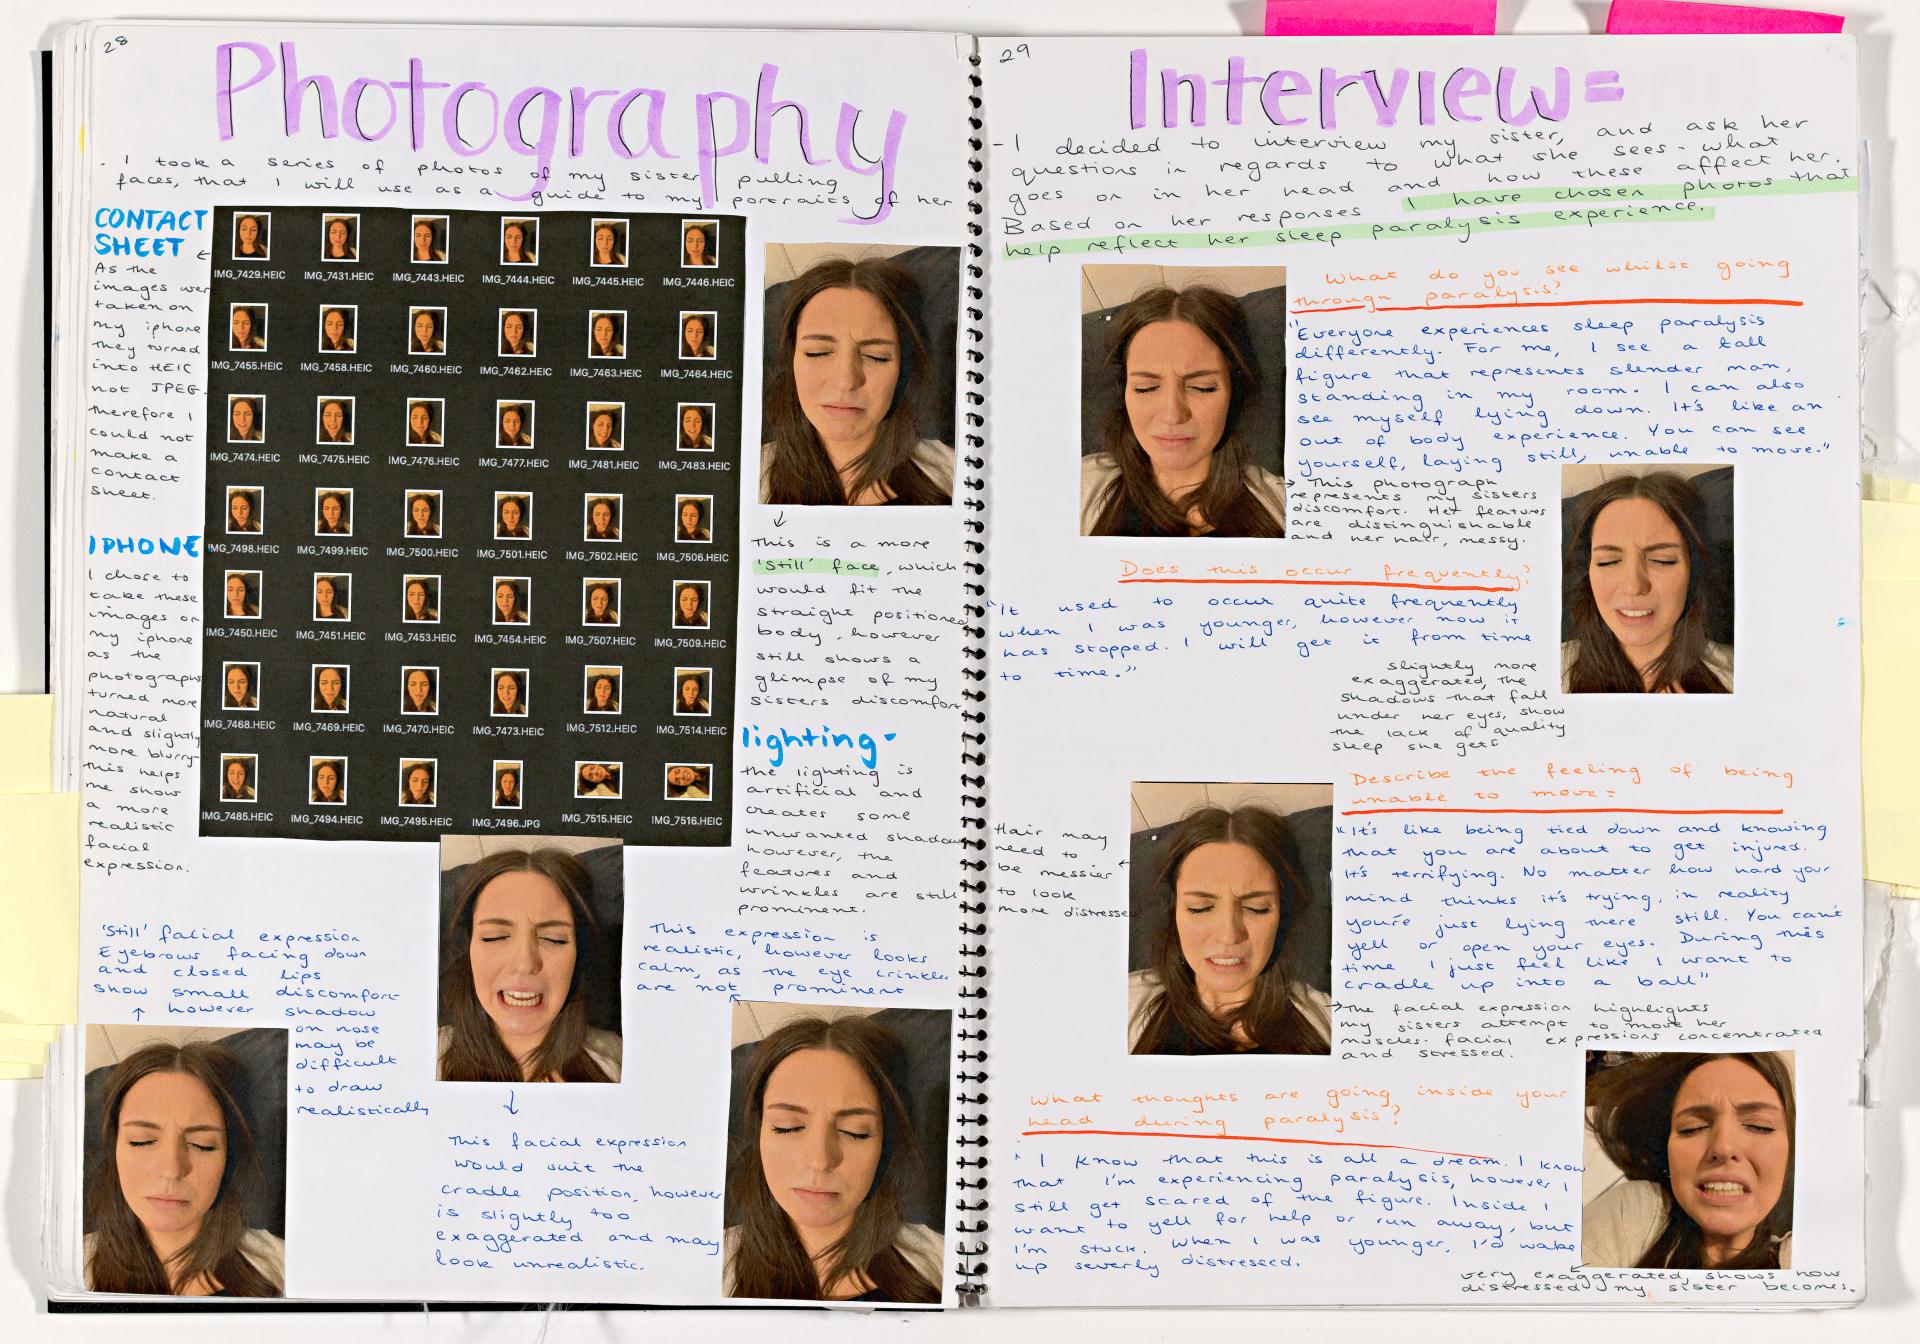 28
Photography
- I took a series of photos of my sister pulling
faces, that I will use as a guide to my portraits of her
CONTACT
SHEET
As the
images wer
taken on
my iphone
they turned
into HEIC
not JPEG.
therefore I
could not
make a
contact
sheet.
IPHONE
I chose to
take these
images on
my iphone
as the
photographs
turned more
natural
and slightly
more blurry-
this helps
me show
a more
realistic
facial
expression.
IMG_7429.HEIC IMG_7431.HEIC IMG_7443.HEIC IMG_7444.HEIC IMG_7445.HEIC IMG_7446.HEIC
IMG_7455.HEIC IMG_7458.HEIC IMG_7460.HEIC IMG_7462.HEIC IMG_7463.HEIC IMG_7464.HEIC
IMG_7474.HEIC IMG_7475.HEIC IMG_7476.HEIC IMG_7477.HEIC IMG_7481.HEIC IMG_7483.HEIC
IMG_7498.HEIC IMG_7499.HEIC IMG_7500.HEIC IMG_7501.HEIC IMG_7502.HEIC IMG_7506.HEIC
IMG_7450.HEIC IMG_7451.HEIC IMG_7453.HEIC IMG_7454.HEIC IMG_7507.HEIC IMG_7509.HEIC
IMG_7468.HEIC IMG_7469.HEIC IMG_7470.HEIC IMG_7473.HEIC IMG_7512.HEIC IMG_7514.HEIC
IMG_7485.HEIC IMG_7494.HEIC IMG_7495.HEIC IMG_7496.JPG IMG_7515.HEIC IMG_7516.HEIC
This is a more
'still' face, which
would fit the
straight positioned
body, however
still shows a
glimpse of my
sisters discomfort
lighting-
the lighting is
artificial and
creates some
unwanted shadow
however, the
features and
wrinkles are still
prominent.
'Still' facial expression
Eyebrows facing down
and closed lips
show small discomfort
however shadow
on nose
may be
difficult
to draw
realistically
This facial expression
would suit the
cradle position, however
is slightly too
exaggerated and may
look unrealistic.
This expression is
realistic, however looks
calm, as the eye crinkles
are not prominent
29
Interview=
- I decided to interview my sister, and ask her
questions in regards to what she sees - what
goes on in her head and how these affect her.
Based on her responses I have chosen photos that
help reflect her sleep paralysis experience.
What do you see whilst going
through paralysis?
"Everyone experiences sleep paralysis
differently. For me, I see a tall
figure that represents slender man,
standing in my room. I can also
see myself lying down. It's like an
out of body experience. You can see
yourself, laying still, unable to move."
This photograph
represents my sisters
discomfort. Her features
are distinguishable
and her hair, messy.
Does this occur frequently?
"It used to occur quite frequently
when I was younger, however now it
has stopped. I will get it from time
to time."
slightly more
exaggerated, the
shadows that fall
under her eyes, show
the lack of quality
sleep she gets
Describe the feeling of being
unable to move=
"It's like being tied down and knowing
that you are about to get injured.
It's terrifying. No matter how hard your
mind thinks it's trying, in reality
you're just lying there still. You can't
yell or open your eyes. During this
time I just feel like I want to
cradle up into a ball"
Hair may
need to
be messier
to look
more distressed
The facial expression highlights
my sisters attempt to move her
muscles. facial expressions concentrated
and stressed.
What thoughts are going inside your
head during paralysis?
" I know that this is all a dream. I know
that I'm experiencing paralysis, however I
still get scared of the figure. Inside I
want to yell for help or run away, but
I'm stuck. When I was younger, I'd wake
up severly distressed.
very exaggerated, shows how
distressed my sister becomes.